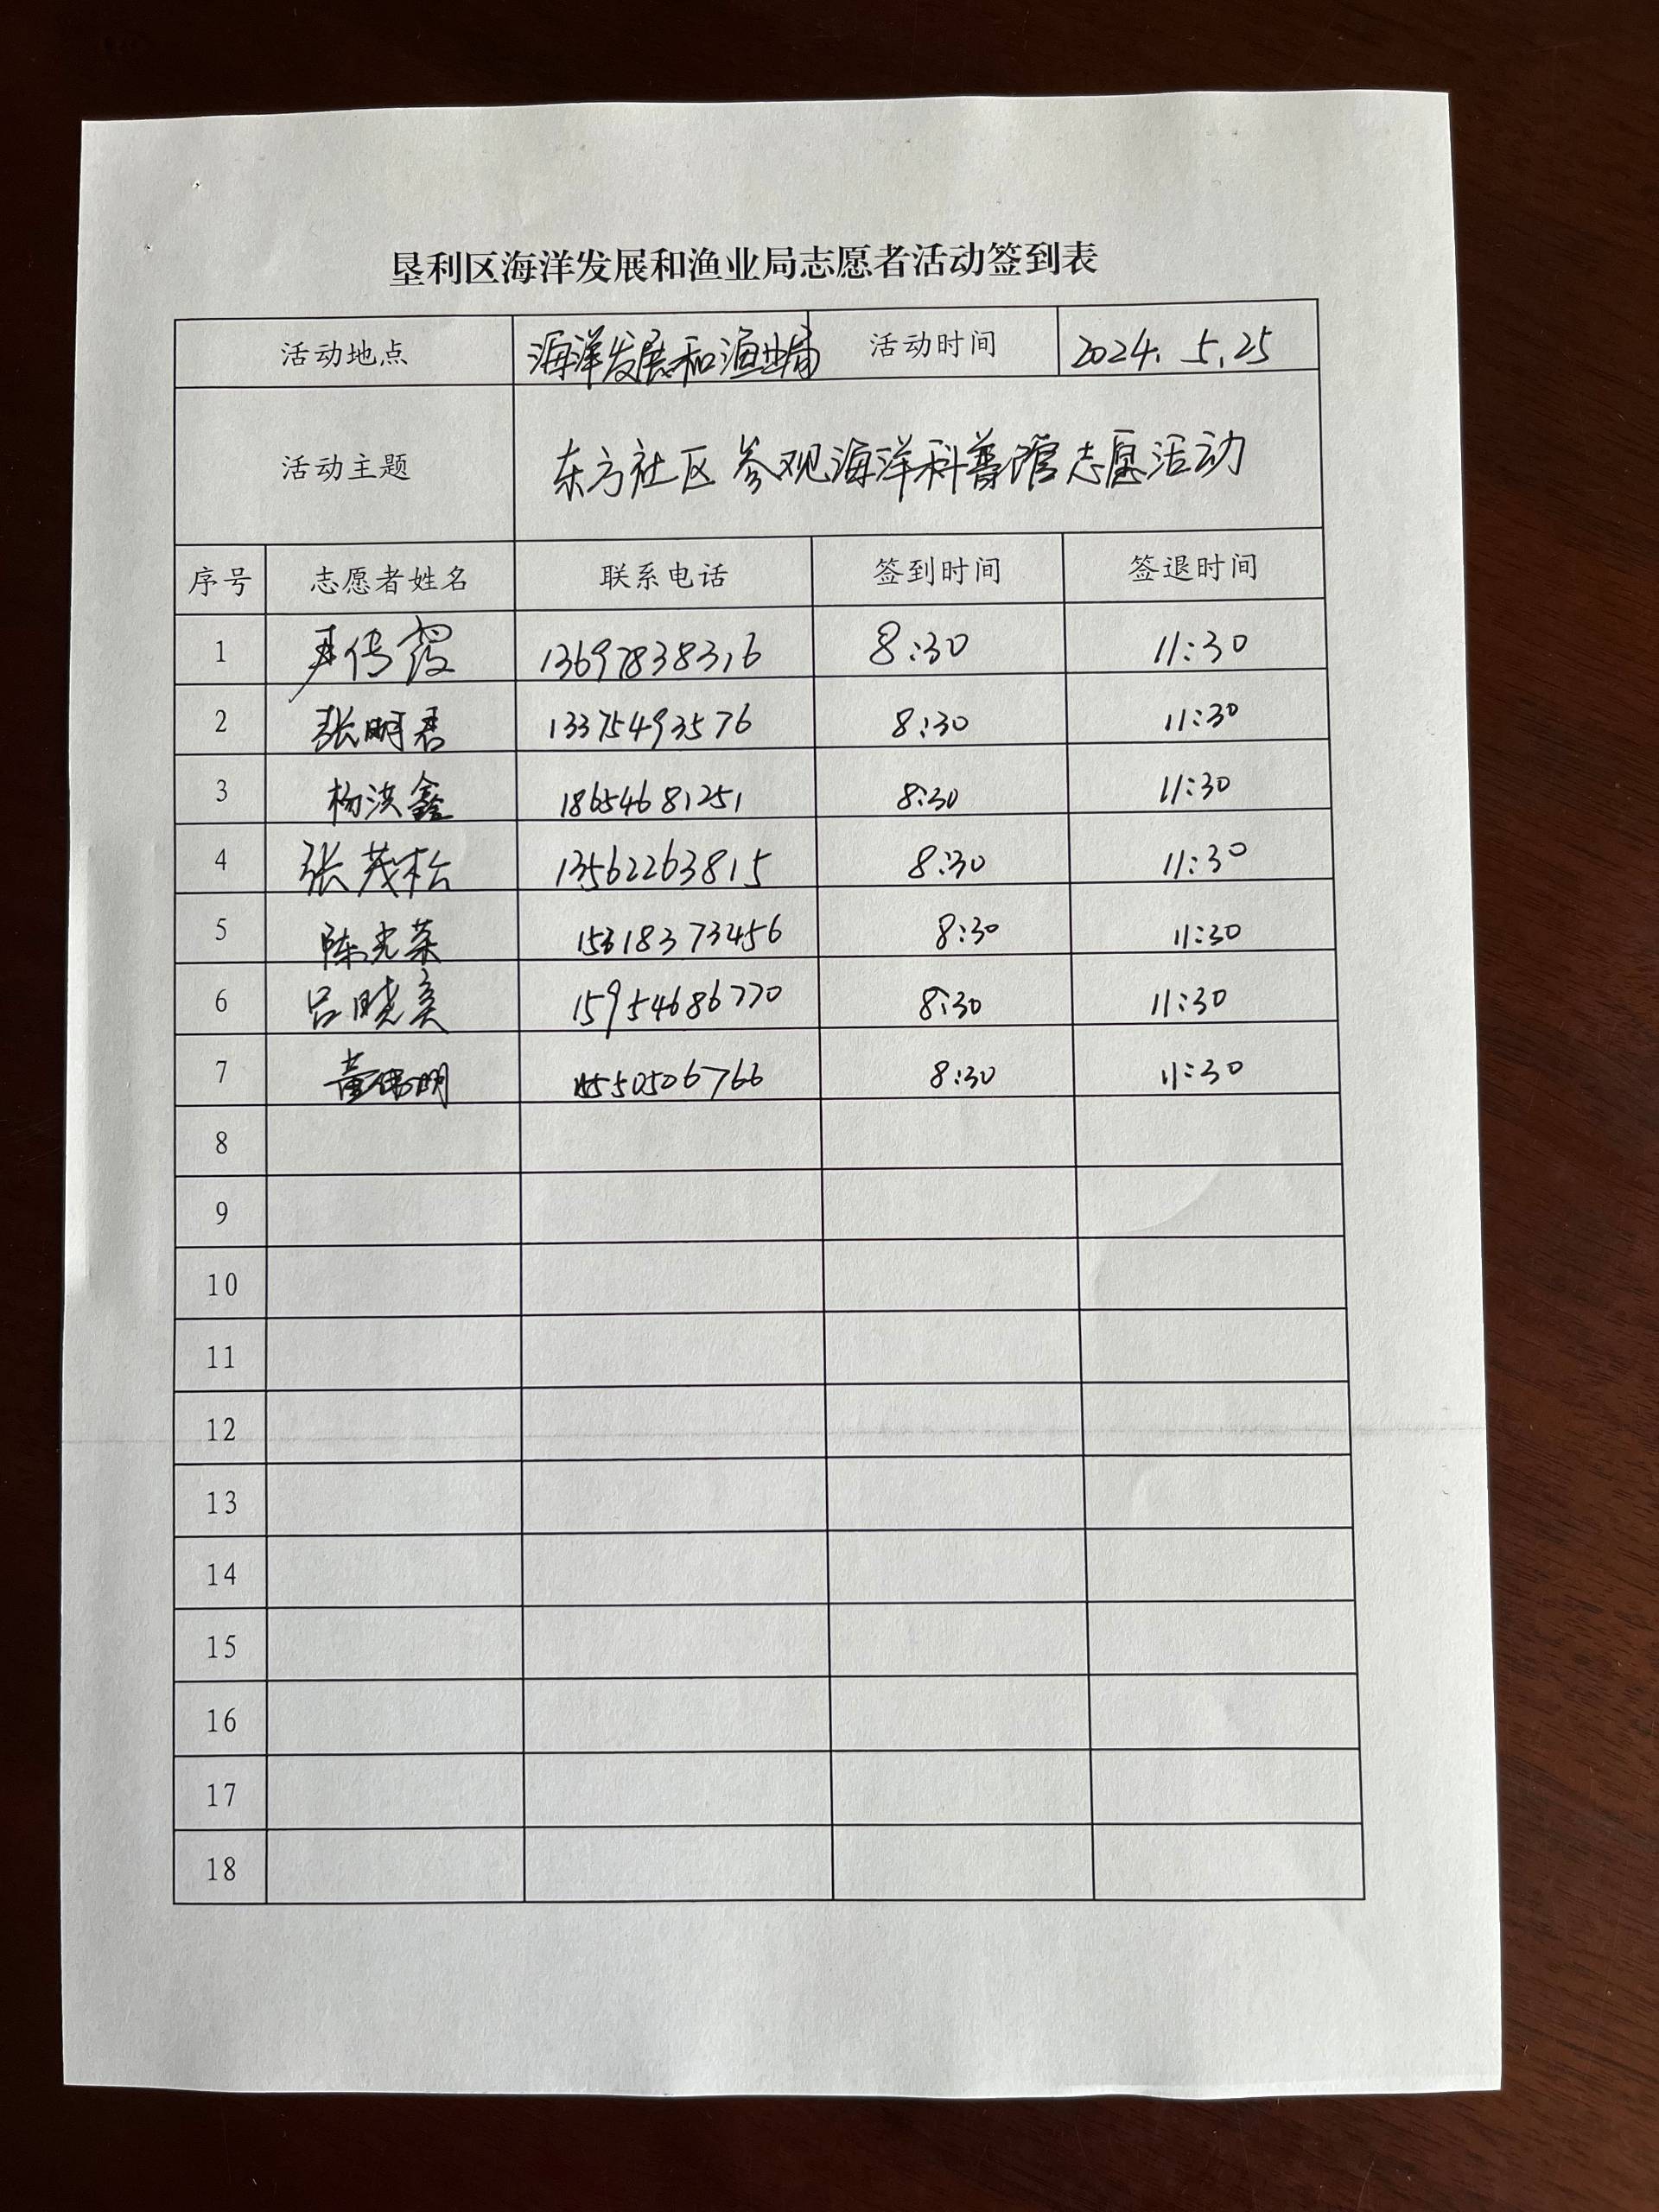 垦利区海洋发展和渔业局志愿者活动签到表
活动地点 海洋发展和渔业局 活动时间 2024.5.25
活动主题 东方社区参观海洋科普馆志愿活动
序号 志愿者姓名 联系电话 签到时间 签退时间
1 传霞 13697838316 8:30 11:30
2 张明君 13375493576 8:30 11:30
3 杨洪鑫 18654681251 8:30 11:30
4 张茂松 13562263815 8:30 11:30
5 陈光荣 15318373456 8:30 11:30
6 吕晓 15954686770 8:30 11:30
7 董伟明 15550506766 8:30 11:30
8
9
10
11
12
13
14
15
16
17
18